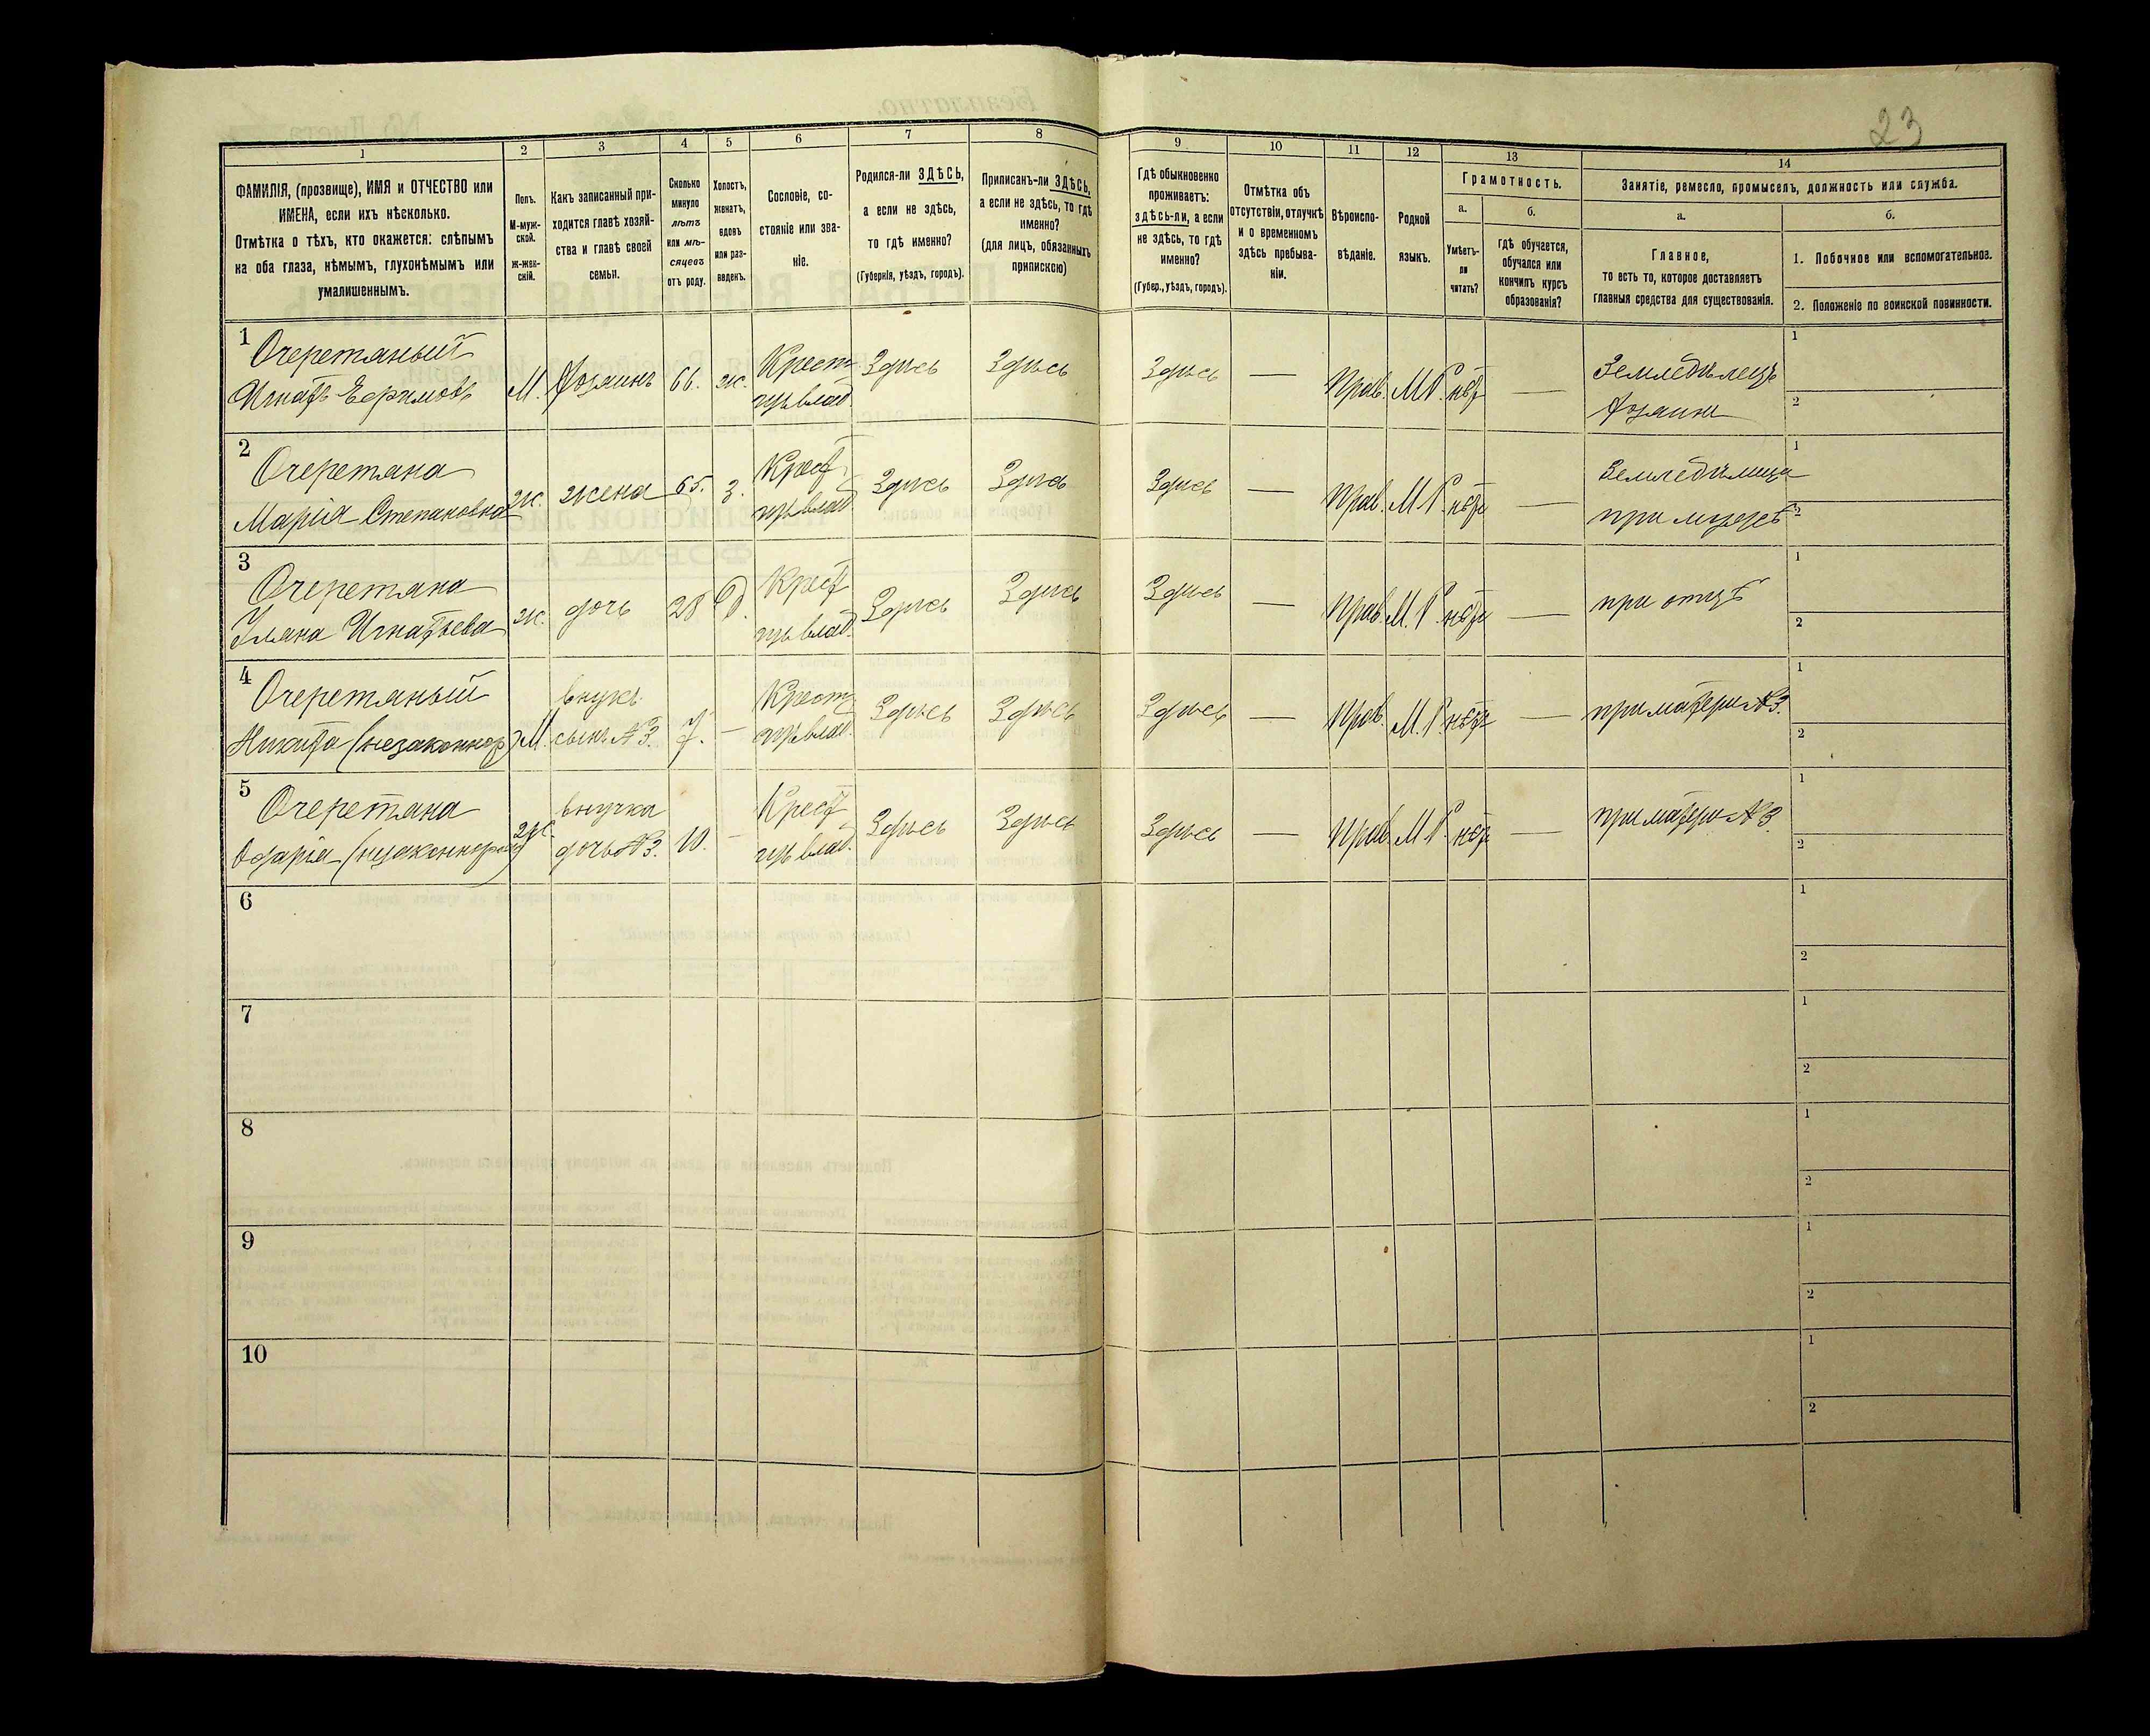 23
1
2
3
4
5
6
7
8
9
10
11
12
13
14
ФАМИЛІЯ, (прозвище), ИМЯ и ОТЧЕСТВО или
ИМЕНА, если ихъ нѣсколько.
Отмѣтка о тѣхъ, кто окажется: слѣпымъ
на оба глаза, нѣмымъ, глухонѣмымъ или
умалишеннымъ.
Полъ.
М-муж-
ской.
Ж-жен-
скій.
Какъ записанный при-
ходится главѣ хозяй-
ства и главѣ своей
семьи.
Сколько
минуло
лѣтъ
или мѣ-
сяцевъ
отъ роду.
Холостъ,
женатъ,
вдовъ
или раз-
веденъ.
Сословіе, со-
стояніе или зва-
ніе.
Родился-ли ЗДѢСЬ,
а если не здѣсь,
то гдѣ именно?
(Губернія, уѣздъ, городъ).
Приписанъ-ли ЗДѢСЬ,
а если не здѣсь, то гдѣ
именно?
(для лицъ, обязанныхъ
припискою)
Гдѣ обыкновенно
проживаетъ:
здѣсь-ли, а если
не здѣсь, то гдѣ
именно?
(Губер., уѣздъ, городъ).
Отмѣтка объ
отсутствіи, отлучкѣ
и о временномъ
здѣсь пребыва-
ніи.
Вѣроиспо-
вѣданіе.
Родной
языкъ.
Грамотность.
а.
Умѣетъ-
ли
читать?
б.
гдѣ обучается,
обучался или
кончилъ курсъ
образованія?
Занятіе, ремесло, промыселъ, должность или служба.
а.
Главное,
то есть то, которое доставляетъ
главныя средства для существованія.
б.
1. Побочное или вспомогательное.
2. Положеніе по воинской повинности.
1
Очеретяный
Игнатъ М. Хозяинъ 66. ж. Крест. Здѣсь Здѣсь Здѣсь — Прав. М Р. нѣтъ — Земледѣлецъ
Хозяинъ
1
2
2
Очеретяна
Марія Степановна ж. жена 65. з. Крест. Здѣсь Здѣсь Здѣсь — Прав. М Р. нѣтъ — Земледѣлица
при мужѣ
1
2
3
Очеретяна
Уляна Игнатьева ж. дочь 28 Д. Крест. Здѣсь Здѣсь Здѣсь — Прав. М. Р. нѣтъ — при отцѣ
1
2
4
Очеретяный
Никита (незаконнор) М. внукъ
сынъ № 3. 7. — Крест. Здѣсь Здѣсь Здѣсь — Прав. М. Р. нѣтъ — при матери № 3.
1
2
5
Очеретяна
ж. внучка
дочь № 3. 10. — Крест. Здѣсь Здѣсь Здѣсь — Прав. М Р. нѣтъ — при матери № 3.
1
2
6
1
2
7
1
2
8
1
2
9
1
2
10
1
2